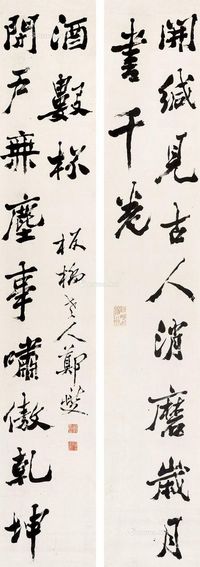 開緘見古人消磨歲月
書千卷
開戶無塵事嘯傲乾坤
酒數杯
板橋老人鄭燮